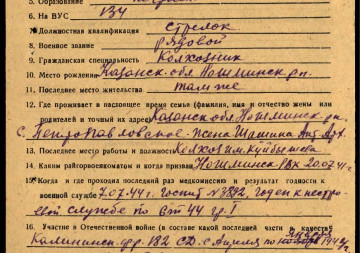 5. Образование
6. На ВУС 134
7. Должностная квалификация стрелок
8. Военное звание рядовой
9. Гражданская специальность Колхозник
10. Место рождения Казанск. обл. Пошминск. рн.
11. Последнее место жительства там же
12. Где проживает в настоящее время семья (фамилия, имя и отчество жены или
родителей и точный их адрес) Казанск. обл. Пошминск. рн
с. Петропавловское - жена
13. Последнее место работы и должность Колхоз им. Куйбышева
14. Каким райгорвоенкоматом и когда призван Пошминск РВК 20.07.41 г.
15. Когда и где проходил последний раз медкомиссию и результат годности к
военной службе 7.07.44 г. Госпит № 3892, годен к нестро-
евой службе по ст 44 гр. I
16. Участие в Отечественной войне (в составе какой последней части и в качестве
Калининск. фр. 182 СД. с Апреля по января 1944 г.